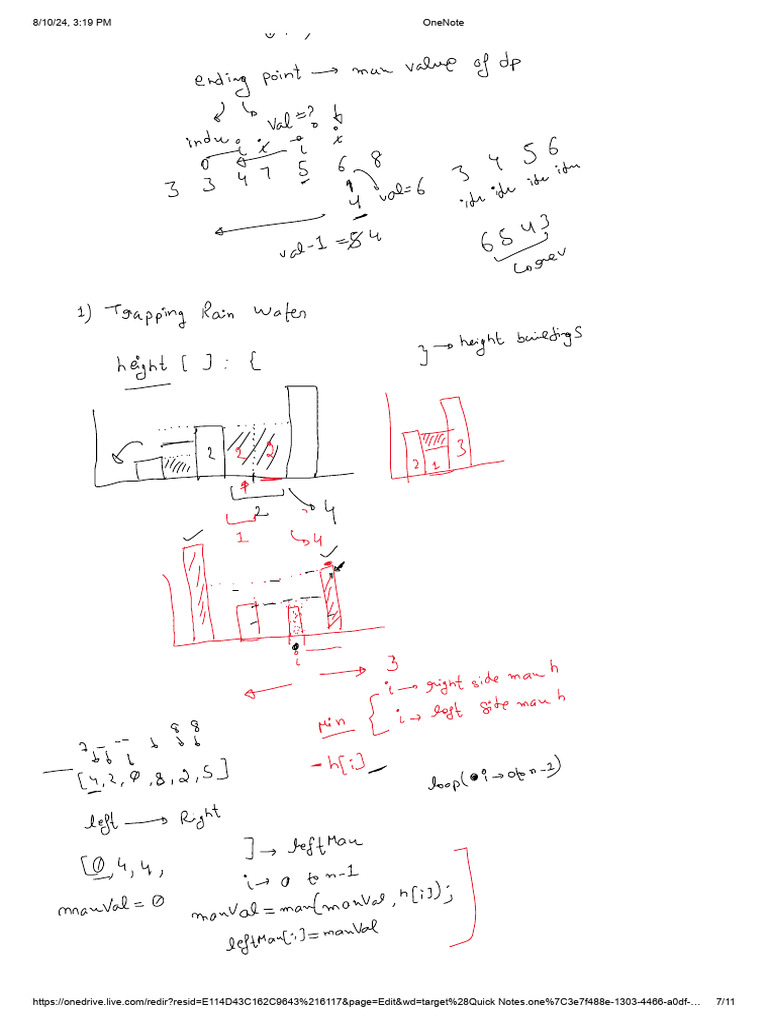 8/10/24, 3:19 PM OneNote
ending point → max value of dp
val = ?
index i x i x
0
3 3 4 7 5 6 8
4 val=6
3 4 5 6
idx idx idx idx
val-1 = 5 4
6 5 4 3
1) Trapping Rain Water
height [ ] : {
} → height buildings
2 2 2
2 1 3
2 4
1 4
i
3
Min { i → right side max h
i → left side max h
- h[i]
7 8 8
[4, 2, 0, 8, 2, 5]
loop( i → 0 to n-2)
left → Right
[0, 4, 4, ] → leftMax
i → 0 to n-1
maxVal = 0
maxVal = max(maxVal, h[i]);
leftMax[i] = maxVal
https://onedrive.live.com/redir?resid=E114D43C162C9643%216117&page=Edit&wd=target%28Quick Notes.one%7C3e7f488e-1303-4466-a0df-… 7/11